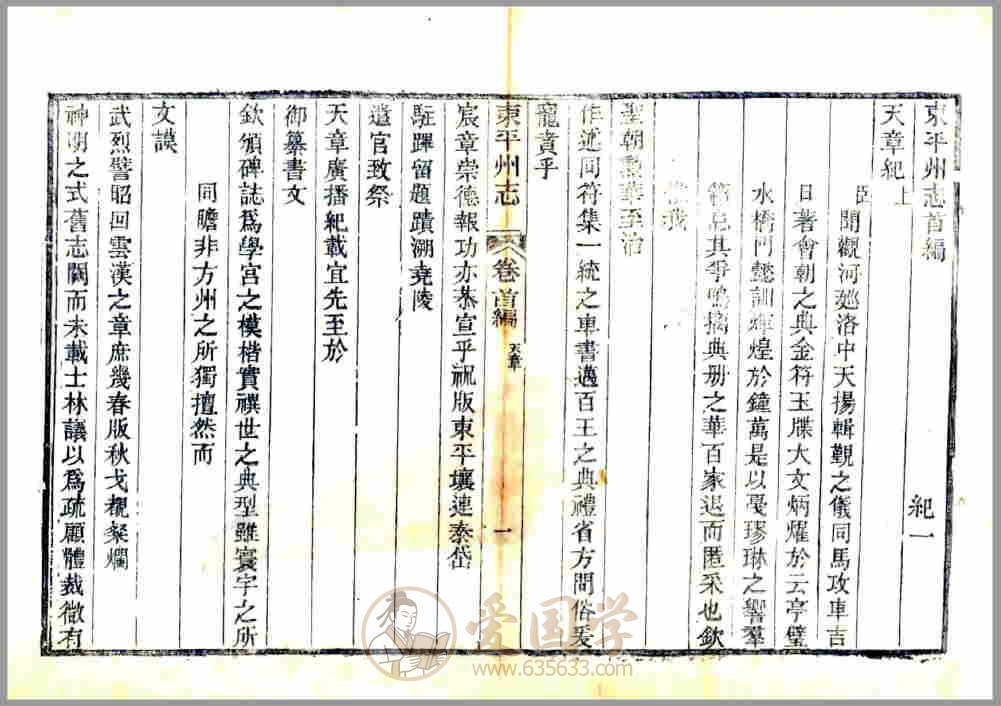 東平州志首編
天章紀上 紀一
臣聞觀河廵洛中天揚輯覲之儀同馬攻車吉
日著會朝之典金符玉牒大文炳燿於云亭璧
水橋門懿訓煇煌於鐘萬是以戞璆琳之響羣
其爭鳴摛典册之華百家退而匿采也欽
聖朝勲華至治
作述同符集一統之車書邁百王之典禮省方問俗爰
寵賁乎
東平州志 卷首編 天章 一
宸章崇德報功亦恭宣乎祝版東平壤連泰岱
駐蹕留題蹟溯堯陵
遣官致祭
天章廣播紀載宜先至於
御纂書文
欽頒碑誌爲學宮之模楷實禩世之典型雖寰宇之所
同瞻非方州之所獨擅然而
文謨
武烈譬昭回雲漢之章庶幾春版秋戈覩粲爛
神明之式舊志闕而未載士林議以爲疏顧體裁微有
爱国学
www.635633.com